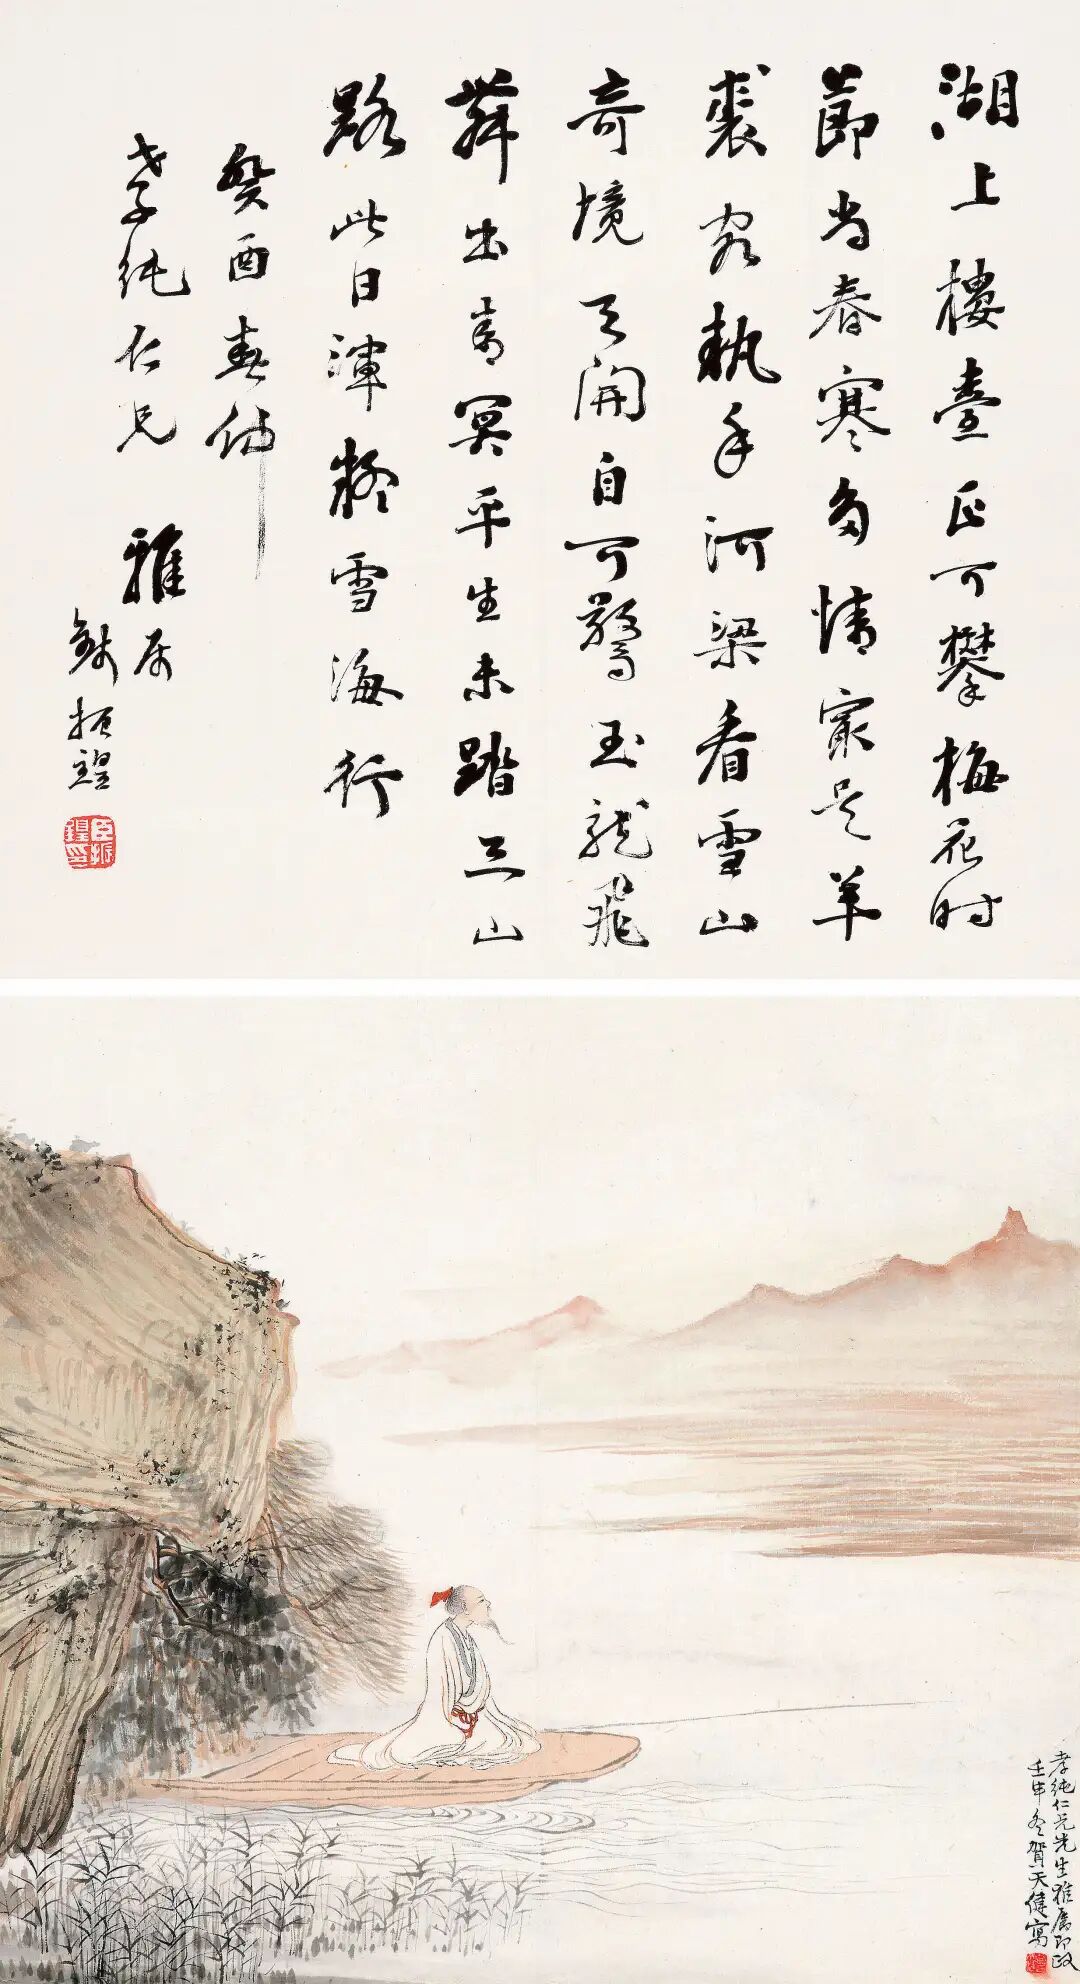 湖上樓臺正可攀梅花时
節尚春寒多情最是羊
裘客執手河梁看雪山
奇境天開自可驚玉龍飛
舞出青冥平生未踏三山
路此日渾疑雪海行
癸酉春仲
孝純仁兄 雅属
錢振鍠
臣振鍠印
孝純仁兄先生雅属即政
壬申冬賀天健寫